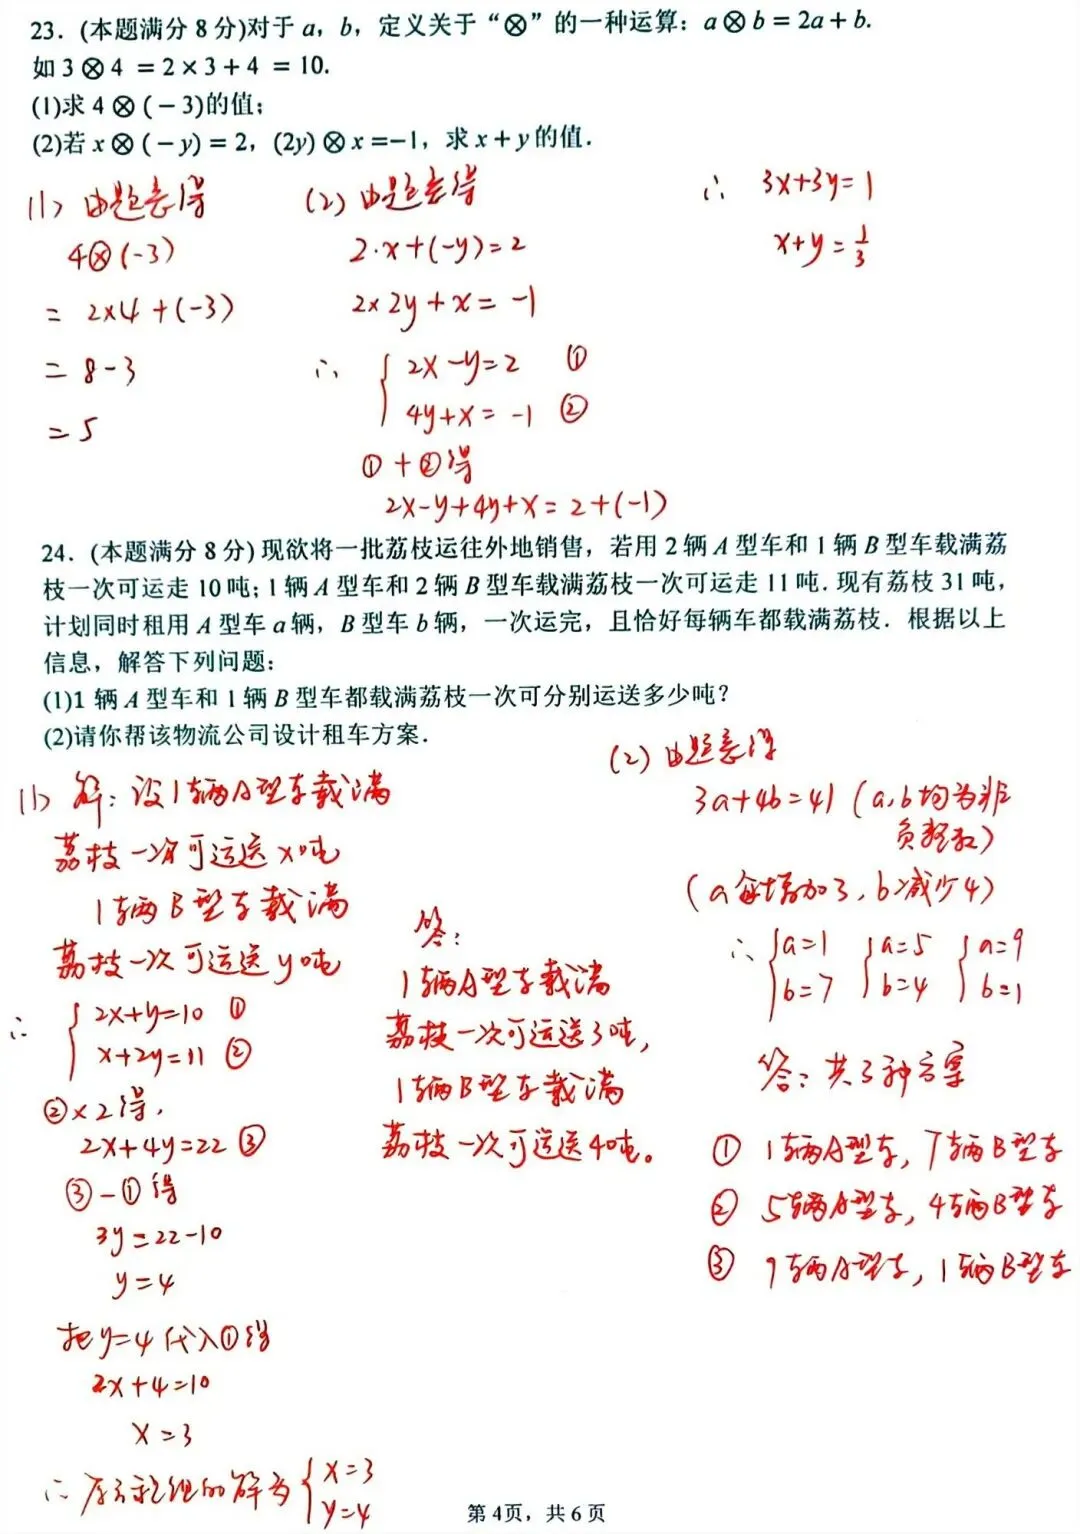 23. (本题满分 8 分)对于 a，b，定义关于“⊗”的一种运算：a⊗b=2a+b.
如 3⊗4 =2×3+4 =10.
(1)求 4⊗(−3)的值；
(2)若 x⊗(−y)=2，(2y)⊗x=−1，求 x+y 的值．
(1) 由题意得
4⊗(-3)
= 2×4+(-3)
= 8-3
= 5
(2) 由题意得
2·x+(-y)=2
2×2y+x=-1
∴ { 2x-y=2 ①
4y+x=-1 ②
①+②得
2x-y+4y+x=2+(-1)
∴ 3x+3y=1
x+y=1/3
24. (本题满分 8 分) 现欲将一批荔枝运往外地销售，若用 2 辆 A 型车和 1 辆 B 型车载满荔
枝一次可运走 10 吨；1 辆 A 型车和 2 辆 B 型车载满荔枝一次可运走 11 吨．现有荔枝 31 吨，
计划同时租用 A 型车 a 辆，B 型车 b 辆，一次运完，且恰好每辆车都载满荔枝．根据以上
信息，解答下列问题：
(1)1 辆 A 型车和 1 辆 B 型车都载满荔枝一次可分别运送多少吨？
(2)请你帮该物流公司设计租车方案．
(1) 解：设1辆A型车载满
荔枝一次可运送x吨
1辆B型车载满
荔枝一次可运送y吨
∴ { 2x+y=10 ①
x+2y=11 ②
②×2得，
2x+4y=22 ③
③-①得
3y=22-10
y=4
把y=4代入①得
2x+4=10
x=3
∴ 原方程组的解为 { x=3
y=4
答：
1辆A型车载满
荔枝一次可运送3吨，
1辆B型车载满
荔枝一次可运送4吨。
(2) 由题意得
3a+4b=41 (a,b均为非
负整数)
(a每增加3，b减少4)
∴ { a=1 { a=5 { a=9
b=7 b=4 b=1
答：共3种方案
① 1辆A型车，7辆B型车
② 5辆A型车，4辆B型车
③ 9辆A型车，1辆B型车
第 4页，共 6 页